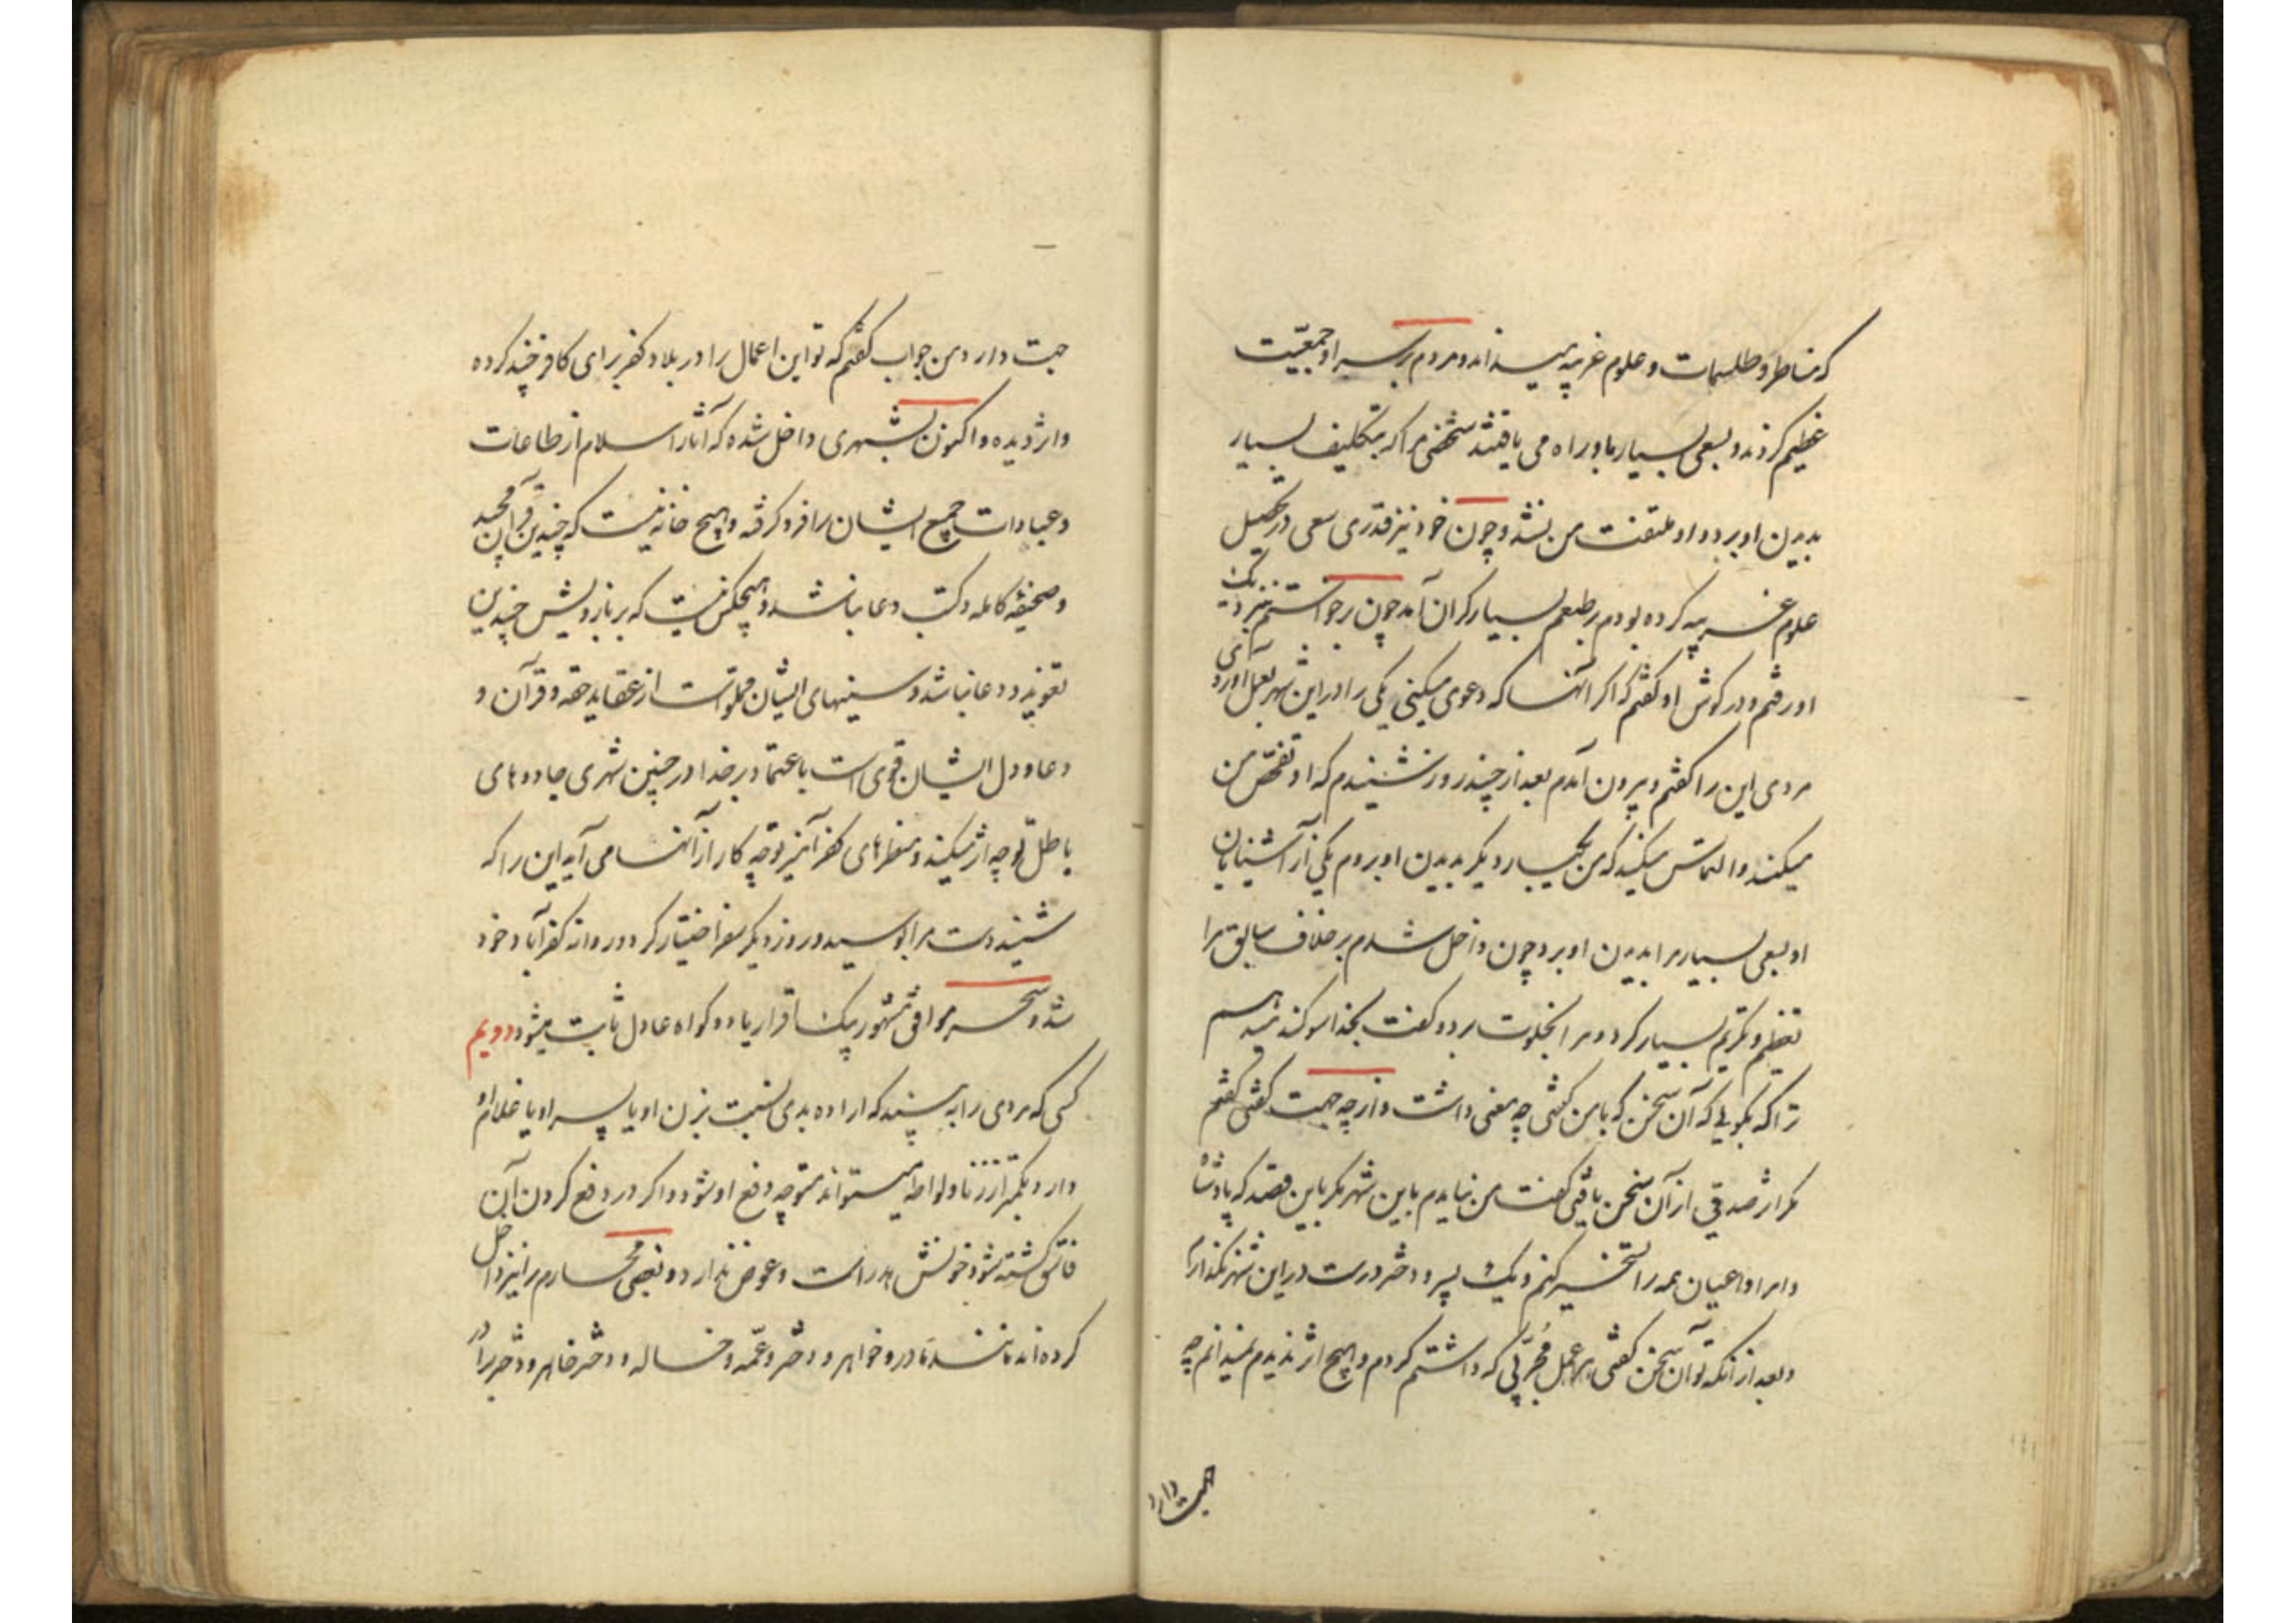 که مناطر و طلسمات و علوم غریبه میداند و مردم بر سر او جمعیت
عظیم کردند و بسعی بسیار باو راه می یافتند شخصی مرا که بتکلیف بسیار
بدیدن او برد و او ملتفت من نشد و چون خود نیز قدری سعی در تحصیل
علوم غریبه کرده بودم بر طبعم بسیار کران آمد چون برخواستم نزدیک
او رفتم و در کوش او کفتم که اکر آنها که دعوی میکنی یکی را در این شهر بعمل آوردی
مردی این را کفتم و بیرون آمدم بعد از چند روز شنیدم که او تفحص من
میکند و التماس میکند که من یکبار دیکر بدیدن او بروم یکی از آشنایان
او بسعی بسیار مرا بدیدن او برد چون داخل شدم بر خلاف سابق مرا
تعظیم و تکریم بسیار کرد و مرا بخلوت برد و کفت بخدا سوکند میدهم
ترا که بکویی که آن سخن که با من کفتی چه معنی داشت و از چه جهت کفتی کفتم
مکر اثر صدقی از آن سخن یافتی کفت من نیامدم باین شهر مکر باین قصد که پادشاه
و امرا و اعیان همه را تسخیر کنم و یک پسر و دختر درست در این شهر نکذارم
و بعد از آنکه تو آن سخن کفتی هر عمل مجربی که داشتم کردم و هیچ اثر ندیدم نمیدانم چه
جهت دارد
جهت دارد من جواب کفتم که تو این اعمال را در بلاد کفر برای کافر چند کرده
و اثر دیده و اکنون بشهری داخل شده که آثار اسلام از طاعات
و عبادات جمیع ایشان را فرو کرفته و هیچ خانه نیست که چندین قرآن مجید
و صحیفه کامله و کتب دعا نباشد و هیچکس نیست که بر بازویش چندین
تعویذ و دعا نباشد و سینهای ایشان مملو است از عقاید حقه و قرآن و
دعا و دل ایشان قوی است باعتماد بر خدا در چنین شهری جادوهای
باطل تو چه اثر میکند و منطرهای کفر آمیز تو چه کار از آنها می آید این را که
شنید دست مرا بوسید و روز دیکر سفر اختیار کرد و روانه کفر آباد خود
شد و سحر موافق مشهور بیک اقرار یا دو کواه عادل ثابت میشود دویم
کسی که مردی را به بیند که اراده بدی نسبت بزن او یا پسر او یا غلام او
دارد بکمتر از زنا و لواطه میتواند متوجه دفع او شود و اکر در دفع کردن آن
فاسق کشته شود خونش هدر است و عوض ندارد و بعضی محارم را نیز داخل
کرده اند مانند مادر و خواهر و دختر و عمه و خاله و دختر خاهر و دختر برادر